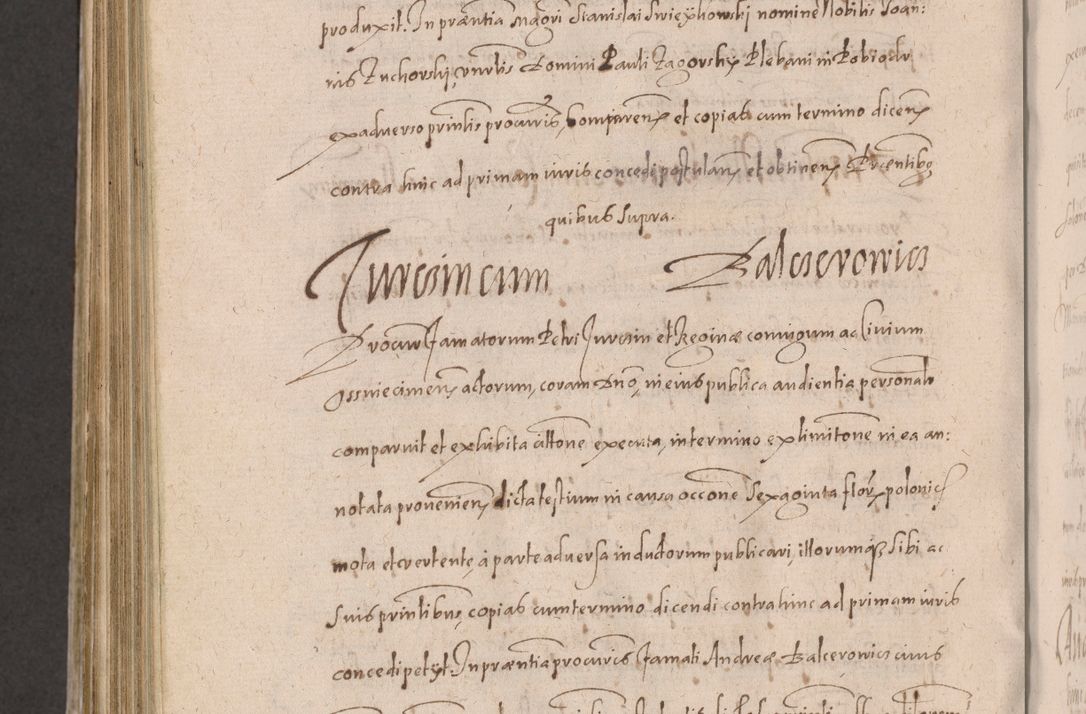 produxit. In præntia Magɾi Stanislai Swięÿkowski nomine Nobilis Ioan:
nis Zuchorskj, vnɾlis Domini Pauli Zagorskÿ Plebani in Pobiedr
ex adverso prinlis procuɾis, comparenꝫ et copias cum termino dicenꝫ
contra hinc ad primam iuris concedi postulanꝫ et obtinenꝫ Præsentibꝰ
quibus supra.
Jurcsin cum Balcserowics
Procuɾ famatorum Petri Jurcsin et Reginæ coniugum ac Civium
Ossviecimenꝫ actorum, coram Dno, in eius publica audientia personalɾ
comparuit et exhibita cittone executa, in termino ex limitone in ea an:
notata provenienꝫ dicta testium in causa occone Sexaginta floɾꝫ polonic
mota et vertente, à parte adversa inductorum publicari, illorumqꝫ sibi ac
suis prinlibus, copias cum termino dicendi contra hinc ad primam iuris
concedi petÿt. In præntia procuris famati Andreæ Balcerowics civis